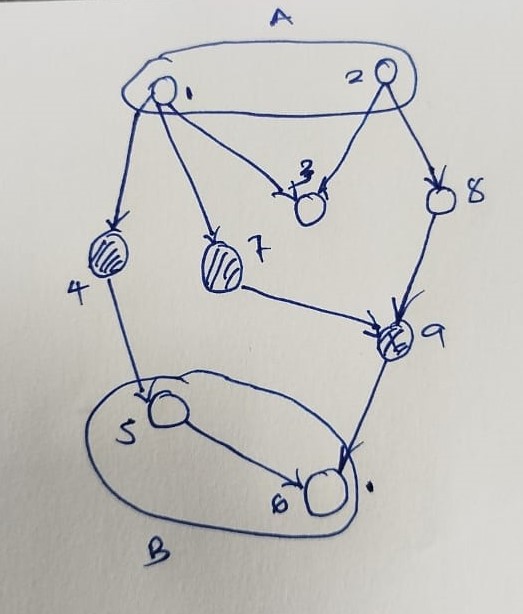 A
1
2
3
8
7
4
9
5
6
B